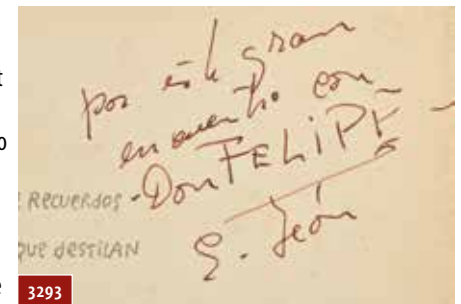 por este gran
encuentro con
Don FELIPE
RECUERDOS
QUE DESTILAN
G. León
3293